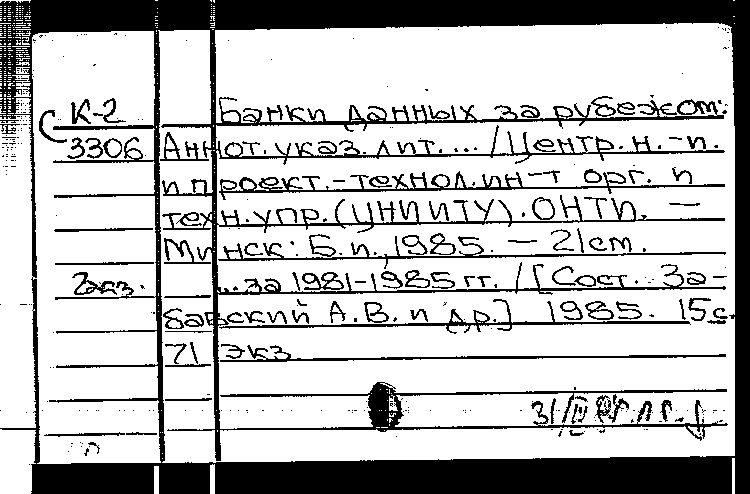 К-2 Банки данных за рубежом:
3306 Аннот. указ. лит... /Центр. н.-и.
и проект.-технол. ин-т орг. и
техн. упр. (ЦНИИТУ). ОНТИ. —
Минск: Б. и., 1985. — 21 см.
2 экз. ... за 1981-1985 гг. / [Сост. За-
бавский А. В. и др.] 1985. 15 с.
71 экз.